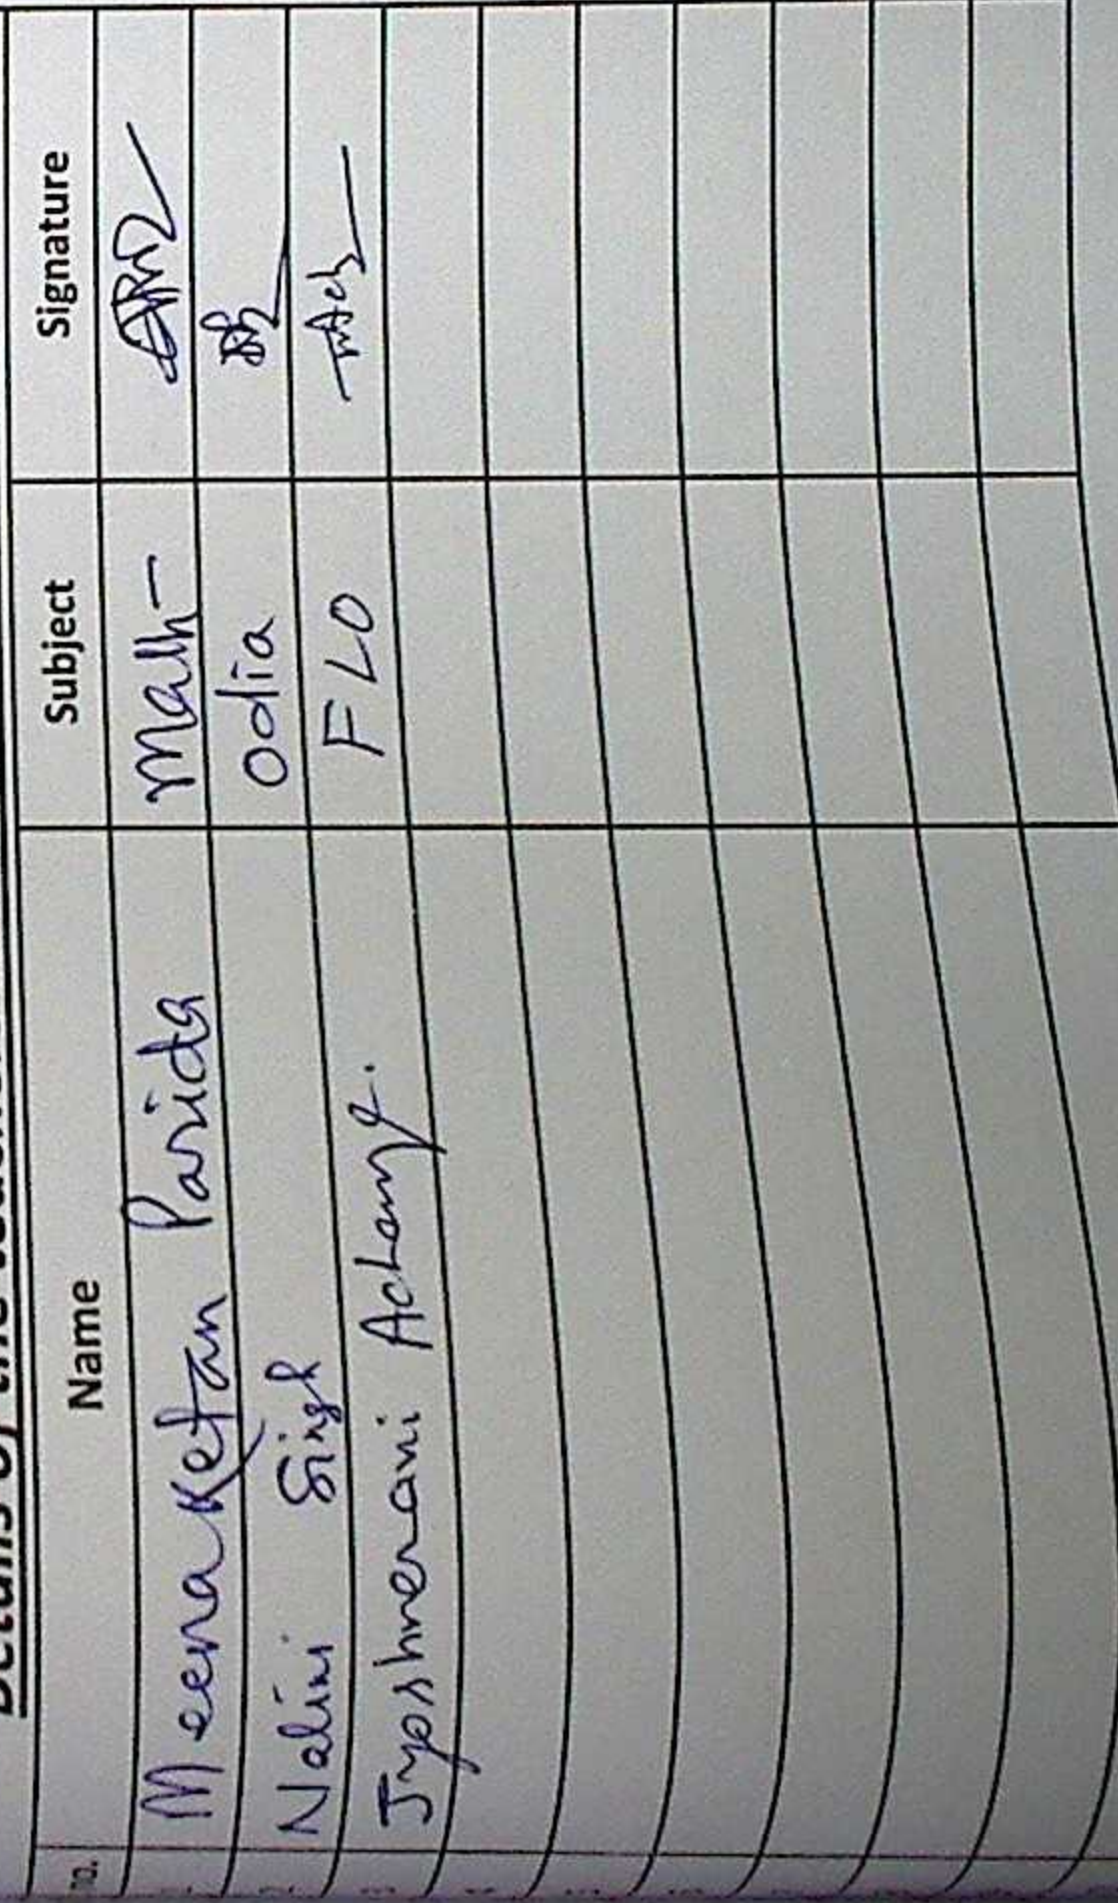 Details of the
no. Name Subject Signature
Meenaketan Parida Math
Nalini Singh Odia
Jyoshnerani Acharya. FLO